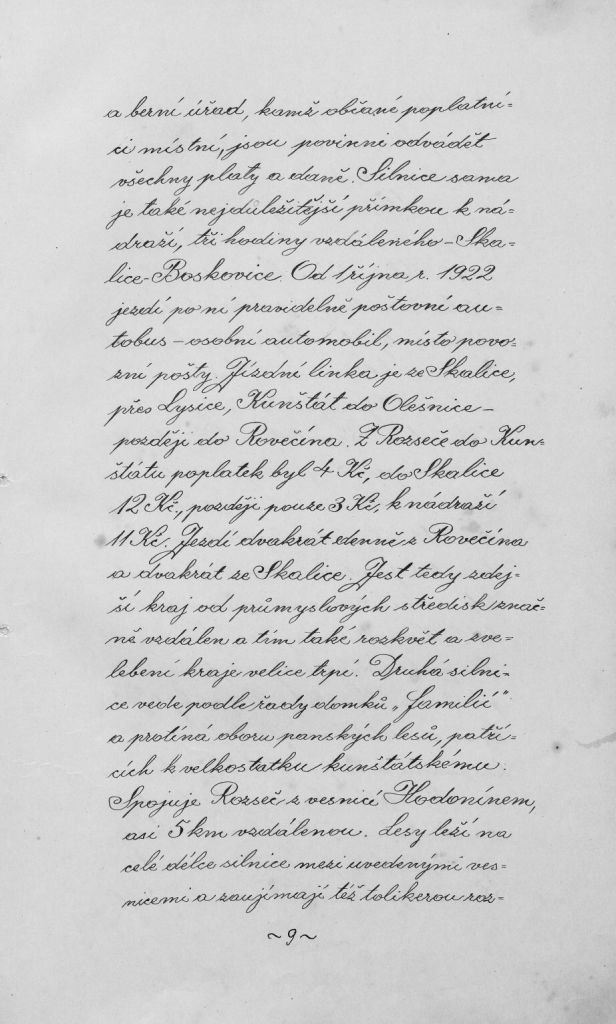 a berní úřad, kamž občané poplatní=
ci místní, jsou povinni odvádět
všechny platy a daně. Silnice sama
je také nejdůležitější přímkou k ná=
draží, tři hodiny vzdáleného – Ska=
lice-Boskovice. Od 1 října r. 1922
jezdí po ní pravidelně poštovní au=
tobus – osobní automobil, místo povo=
zní pošty. Jízdní linka je ze Skalice,
přes Lysice, Kunštát do Olešnice –
později do Rovečína. Z Rozseče do Kun=
štátu poplatek byl 4 Kč, do Skalice
12 Kč., později pouze 3 Kč, k nádraží
11 Kč. Jezdí dvakrát denně z Rovečína
a dvakrát ze Skalice. Jest tedy zdej=
ší kraj od průmyslových středisk znač=
ně vzdálen a tím také rozkvět a zve=
lebení kraje velice trpí. Druhá silni=
ce vede podle řady domků „familií"
a protíná oboru panských lesů, patří=
cích k velkostatku kunštátskému.
Spojuje Rozseč s vesnicí Hodonínem,
asi 5 km vzdálenou. Lesy leží na
celé délce silnice mezi uvedenými ves=
nicemi a zaujímají též tolikerou roz=
~ 9 ~